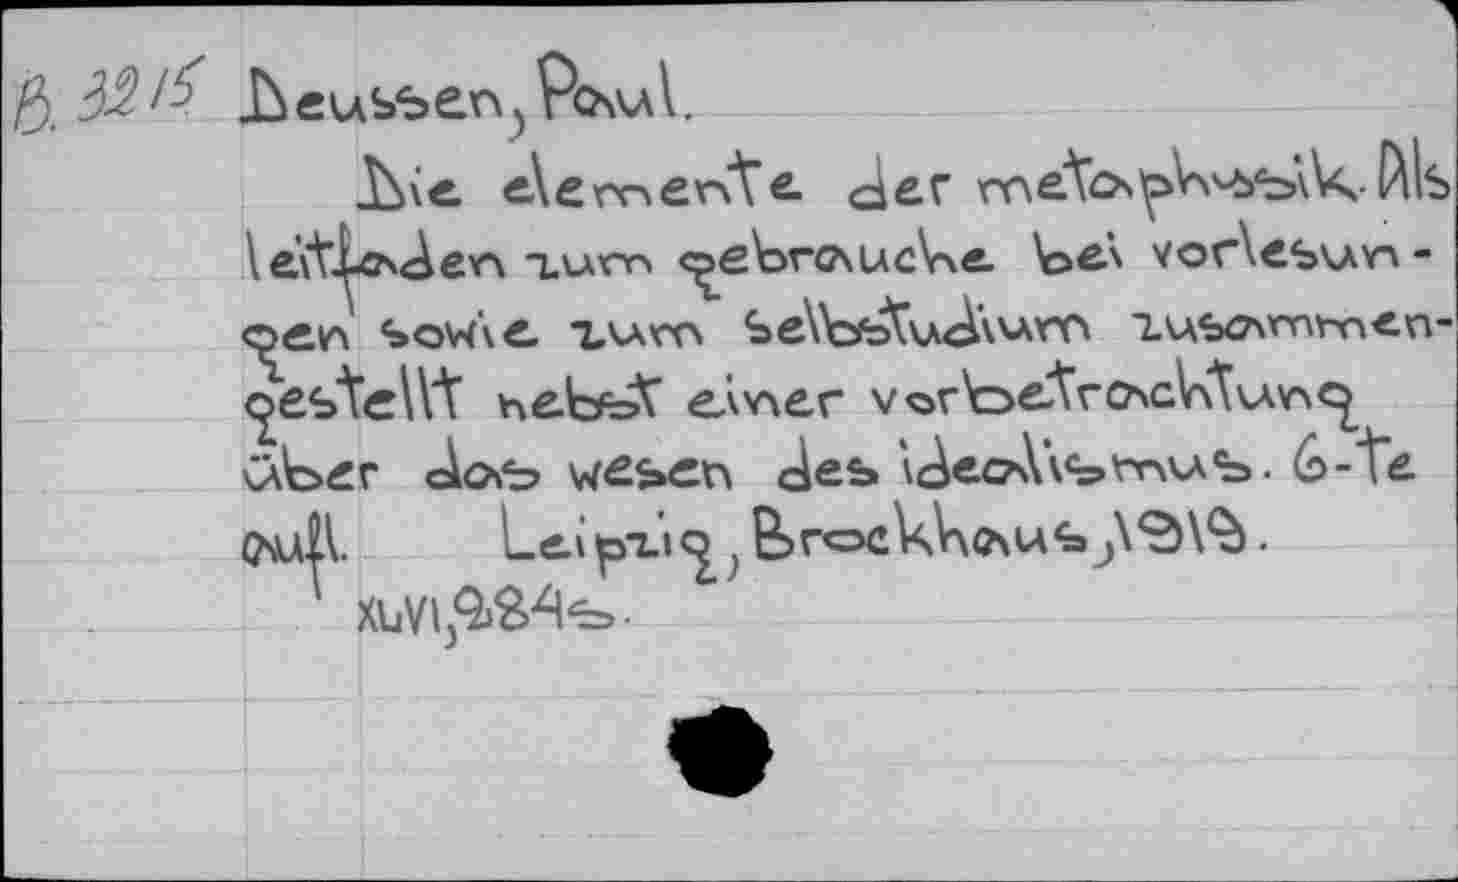 B. 3215 Deussen, Paul.
Die elemente der metaphysik. Als
leitfaden zum gebrauche bei vorlesun-
gen sowie zum selbstudium zusammen-
gestellt nebst einer vorbetrachtung
über das wesen des idealismus. 6-te
aufl. Leipzig, Brockhaus, 1919.
XLVI, 284 s.